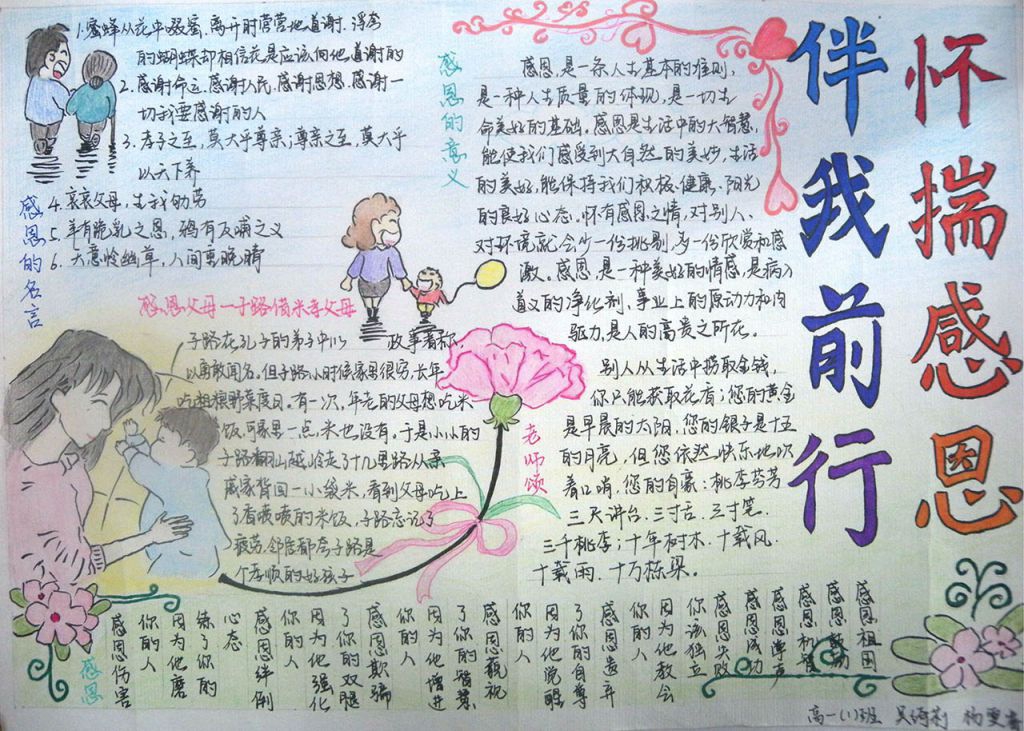 怀揣感恩
伴我前行
1.蜜蜂从花中啜蜜,离开时营营地道谢.浮夸
的蝴蝶却相信花是应该向他道谢的
2.感谢命运.感谢人民,感谢思想.感谢一
切我要感谢的人
3.孝子之至,莫大乎尊亲;尊亲之至,莫大乎
以天下养
4.哀哀父母,生我劬劳
5.羊有跪乳之恩,鸦有反哺之义
6.天意怜幽草,人间重晚晴
感恩的名言
感恩的意义
感恩,是一条人生基本的准则,
是一种人生质量的体现,是一切生
命美好的基础。感恩是生活中的大智慧,
能使我们感受到大自然的美妙,生活
的美好,能保持我们积极.健康.阳光
的良好心态。怀有感恩之情,对别人、
对环境就会少一份挑剔,多一份欣赏和感
激。感恩,是一种美好的情感,是病人
道义的净化剂、事业上的原动力和内
驱力,是人的高贵之所在。
感恩父母—子路借米孝父母
子路在孔子的弟子中以 政事著称,
以勇敢闻名.但子路小时候家里很穷,长年
吃粗粮野菜度日。有一次,年老的父母想吃米
饭,可家里一点米也没有。于是小小的
子路翻山越岭走了十几里路从亲
戚家背回一小袋米,看到父母吃上
了香喷喷的米饭,子路忘记了
疲劳.邻居都夸子路是
个孝顺的好孩子
老师颂
别人从生活中捞取金钱,
你只能获取花香;您的黄金
是早晨的太阳,您的银子是十五
的月亮,但您依然快乐地吹
着口哨,您的自豪:桃李芬芳
三尺讲台.三寸舌.三寸笔.
三千桃李;十年树木.十载风.
十载雨.十万栋梁。
感恩
感恩伤害
你的人
因为他磨
练了你的
心态
感恩绊倒
你的人
因为他强化
了你的双腿
感恩欺骗
你的人
因为他增进
了你的智慧
感恩藐视
你的人
因为他觉醒
了你的自尊
感恩遗弃
你的人
因为他教会
你该独立
感恩失败
感恩成功
感恩掌声
感恩祖国
高一(1)班